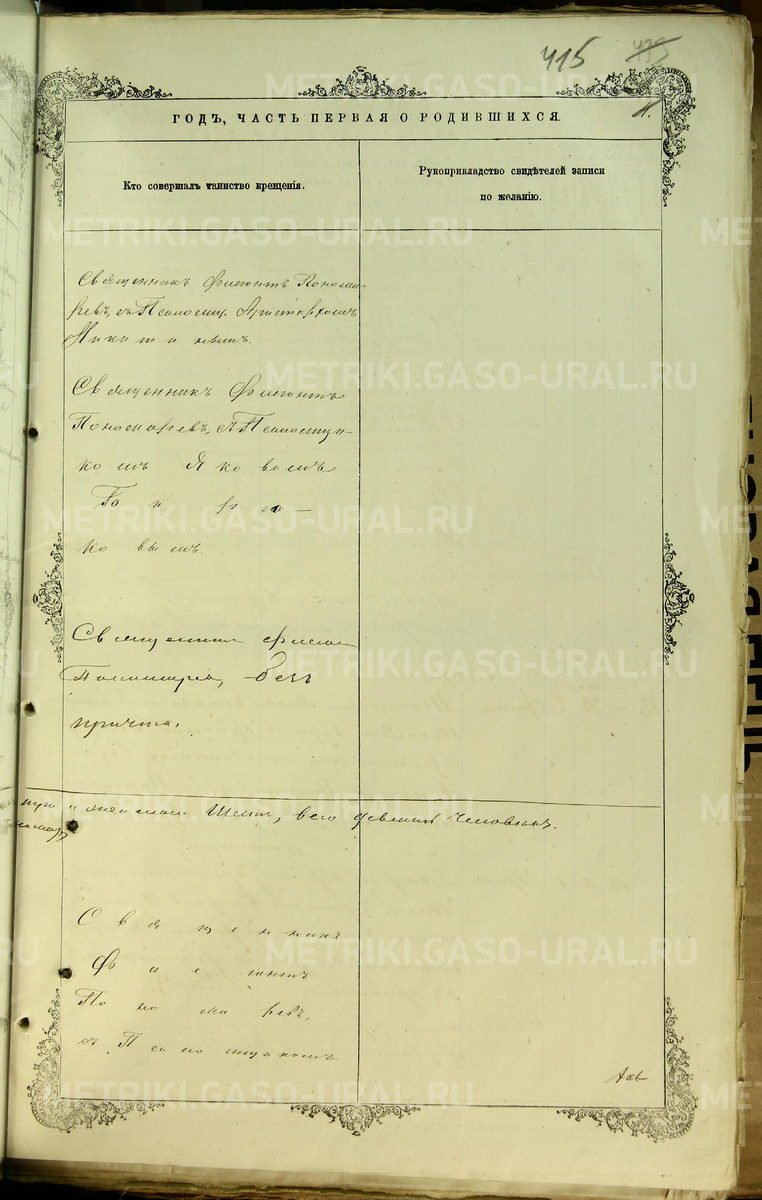 415
ГОДЪ, ЧАСТЬ ПЕРВАЯ О РОДИВШИХСЯ.
Кто совершалъ таинство крещенія.
Рукоприкладство свидѣтелей записи
по желанію.
Священникъ Филонтъ Понома-
ревъ, съ Псаломщ. Аристархомъ
Никитинымъ.
Священникъ Филонтъ
Пономаревъ, съ Псаломщи-
комъ Яковомъ
ковымъ.
Священникъ
Пономаревъ, безъ
причта.
всего девять человѣкъ.
Священникъ
Филонтъ
Пономаревъ,
съ Псаломщикомъ
METRIKI.GASO-URAL.RU